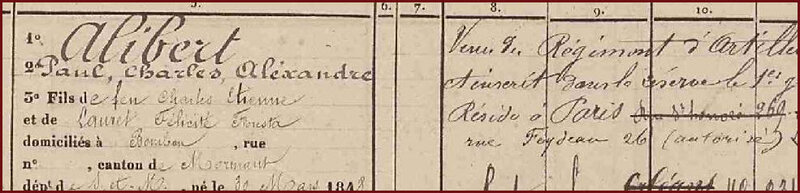 5. 6. 7. 8. 9. 10.
1º Alibert
2º Paul, Charles, Alexandre
3º Fils de feu Charles Etienne
et de Lauret Félicité Fausta
domiciliés à Bombon, rue
nº , canton de Mormant
dépt de S. et M., né le 30 Mars 184
Venu du Régiment d'Artille
inscrit dans la réserve le 1er
Réside à Paris rue St honoré 269
rue Feydeau 26 (autorisé)